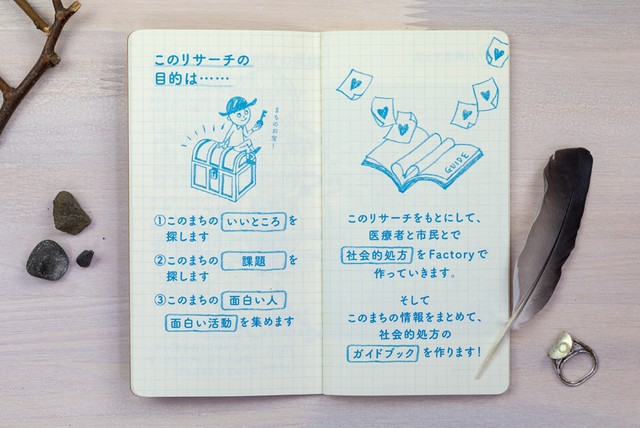 このリサーチの
目的は……
まちのお宝！
①このまちの いいところ を
探します
②このまちの 課題 を
探します
③このまちの 面白い人
面白い活動 を集めます
GUIDE
このリサーチをもとにして、
医療者と市民とで
社会的処方 をFactoryで
作っていきます。
そして
このまちの情報をまとめて、
社会的処方の
ガイドブック を作ります！